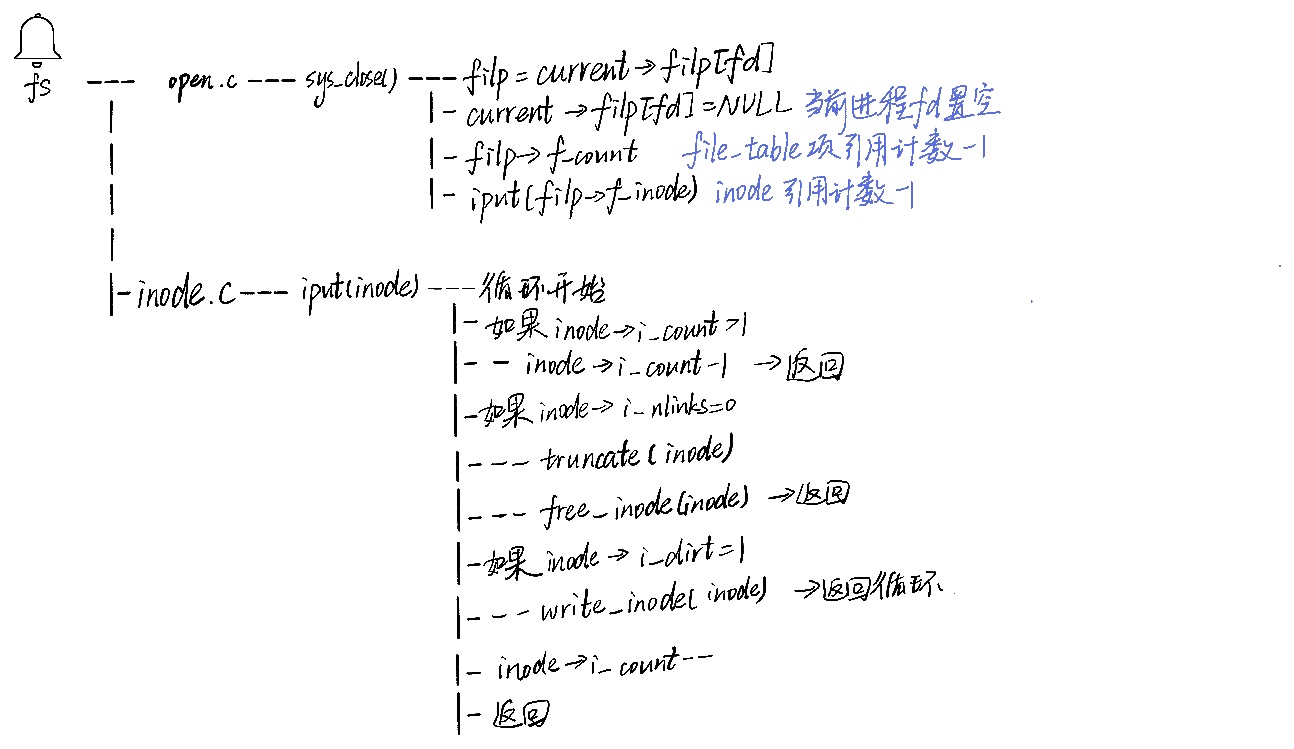 fs --- open.c --- sys_close() --- filp = current→filp[fd]
|- current→filp[fd]=NULL 当前进程fd置空
|- filp→f_count file_table项引用计数-1
|- iput(filp→f_inode) inode引用计数-1
|-inode.c--- iput(inode) ---循环开始
|- 如果inode→i_count>1
|-- inode→i_count-1 →返回
|-如果inode→i_nlinks=0
|--- truncate(inode)
|--- free_inode(inode) →返回
|-如果inode→i_dirt=1
|--- write_inode(inode) →返回循环
|- inode→i_count--
|- 返回